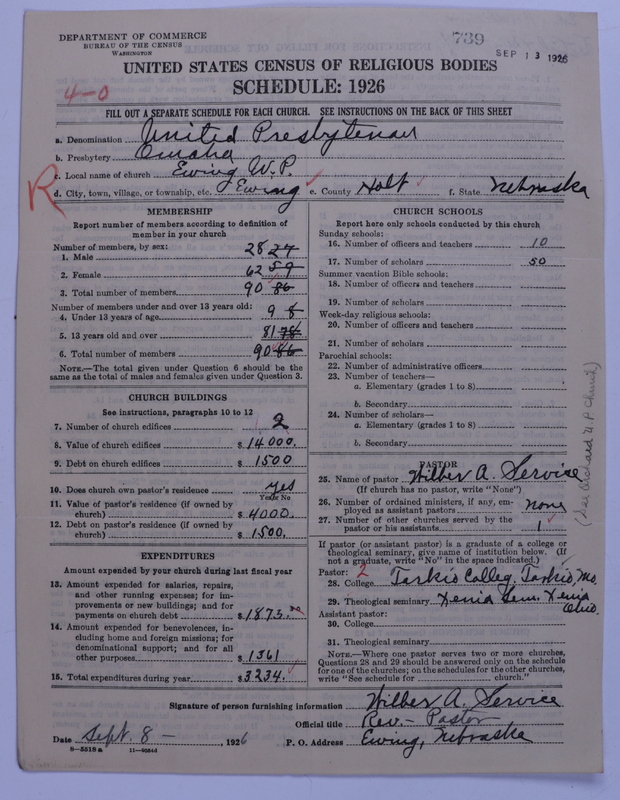 DEPARTMENT OF COMMERCE
BUREAU OF THE CENSUS
WASHINGTON
739
SEP 13 1926
UNITED STATES CENSUS OF RELIGIOUS BODIES
SCHEDULE: 1926
4-0
FILL OUT A SEPARATE SCHEDULE FOR EACH CHURCH. SEE INSTRUCTIONS ON THE BACK OF THIS SHEET
a. Denomination United Presbyterian
b. Presbytery Omaha
c. Local name of church Ewing U.P.
R
d. City, town, village, or township, etc. Ewing e. County Holt f. State Nebraska
MEMBERSHIP
Report number of members according to definition of member in your church
Number of members, by sex:
1. Male 28 27
2. Female 62 59
3. Total number of members 90 86
Number of members under and over 13 years old:
4. Under 13 years of age 9 8
5. 13 years old and over 81 78
6. Total number of members 90 86
NOTE.—The total given under Question 6 should be the same as the total of males and females given under Question 3.
CHURCH BUILDINGS
See instructions, paragraphs 10 to 12
7. Number of church edifices 2
8. Value of church edifices $ 14000.
9. Debt on church edifices $ 1500
10. Does church own pastor's residence yes
Yes or No
11. Value of pastor's residence (if owned by
church) $ 4000.
12. Debt on pastor's residence (if owned by
church) $ 1500.
EXPENDITURES
Amount expended by your church during last fiscal year
13. Amount expended for salaries, repairs,
and other running expenses; for im-
provements or new buildings; and for
payments on church debt $ 1873.
14. Amount expended for benevolences, in-
cluding home and foreign missions; for
denominational support; and for all
other purposes $ 1361
15. Total expenditures during year $ 3234.
CHURCH SCHOOLS
Report here only schools conducted by this church
Sunday schools:
16. Number of officers and teachers 10
17. Number of scholars 50
Summer vacation Bible schools:
18. Number of officers and teachers
19. Number of scholars
Week-day religious schools:
20. Number of officers and teachers
21. Number of scholars
Parochial schools:
22. Number of administrative officers
23. Number of teachers—
a. Elementary (grades 1 to 8)
b. Secondary
24. Number of scholars—
a. Elementary (grades 1 to 8)
b. Secondary
PASTOR
25. Name of pastor Wilber A. Service
(If church has no pastor, write "None")
26. Number of ordained ministers, if any, em-
ployed as assistant pastors none
27. Number of other churches served by the
pastor or his assistants 1
If pastor (or assistant pastor) is a graduate of a college or
theological seminary, give name of institution below. (If
not a graduate, write "No" in the space indicated.)
Pastor: 2
28. College Tarkio College, Tarkio, Mo.
29. Theological seminary Xenia Sem. Xenia
Ohio.
Assistant pastor:
30. College
31. Theological seminary
NOTE.—Where one pastor serves two or more churches,
Questions 28 and 29 should be answered only on the schedule
for one of the churches; on the schedules for the other churches,
write "See schedule for church."
Signature of person furnishing information Wilber A. Service
Official title Rev.- Pastor
Date Sept. 8 - , 1926 P. O. Address Ewing, Nebraska
8-5518 a